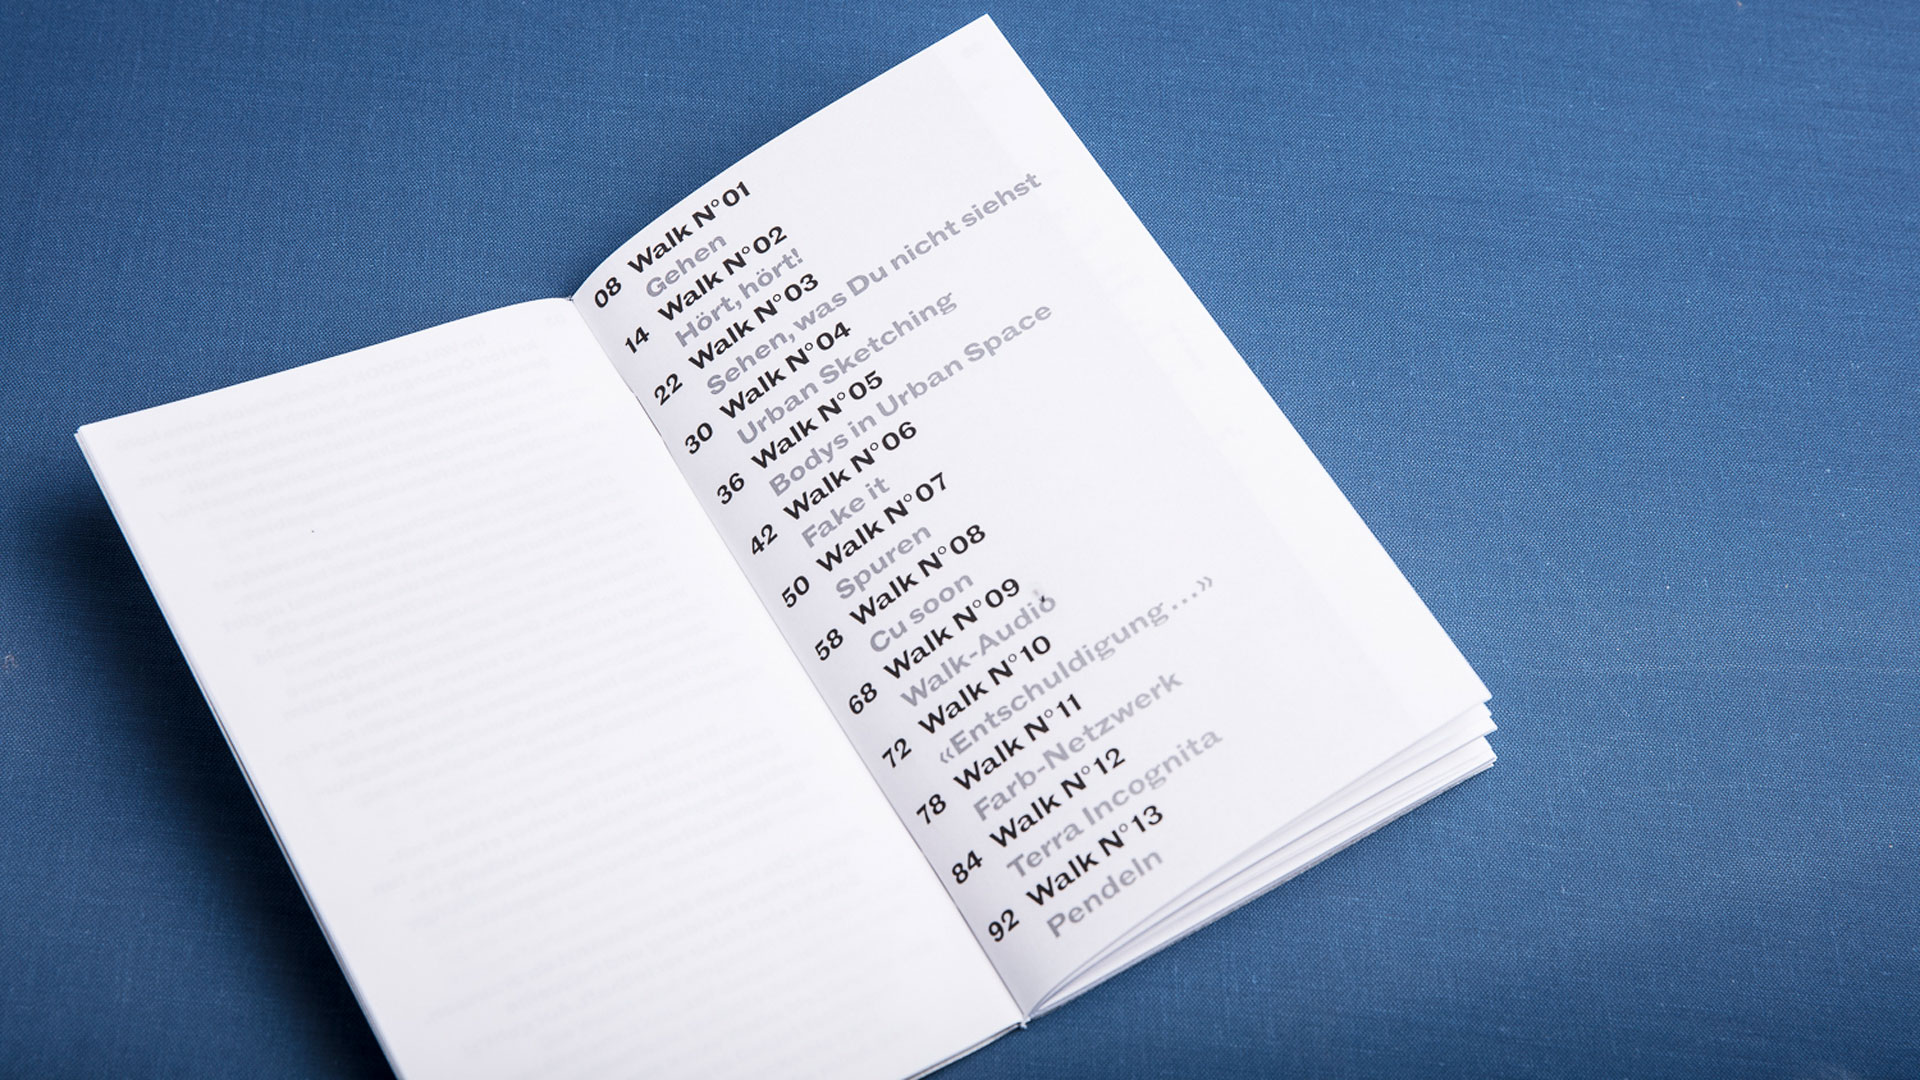 08 Walk N°01
Gehen
14 Walk N°02
Hört, hört!
22 Walk N°03
Sehen, was Du nicht siehst
30 Walk N°04
Urban Sketching
36 Walk N°05
Bodys in Urban Space
42 Walk N°06
Fake it
50 Walk N°07
Spuren
58 Walk N°08
Cu soon
68 Walk N°09
Walk-Audio
72 Walk N°10
«Entschuldigung ...»
78 Walk N°11
Farb-Netzwerk
84 Walk N°12
Terra Incognita
92 Walk N°13
Pendeln